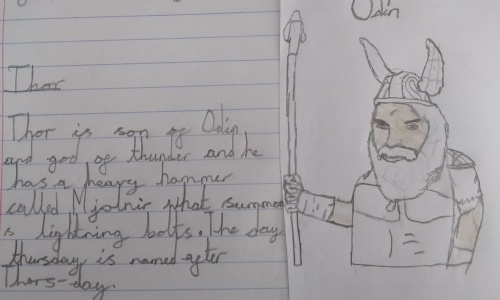 Odin
Thor
Thor is son of Odin
and god of thunder and he
has a heavy hammer
called Mjolnir that summon
s lightning bolts. The day
thursday is named after
Thors-day.